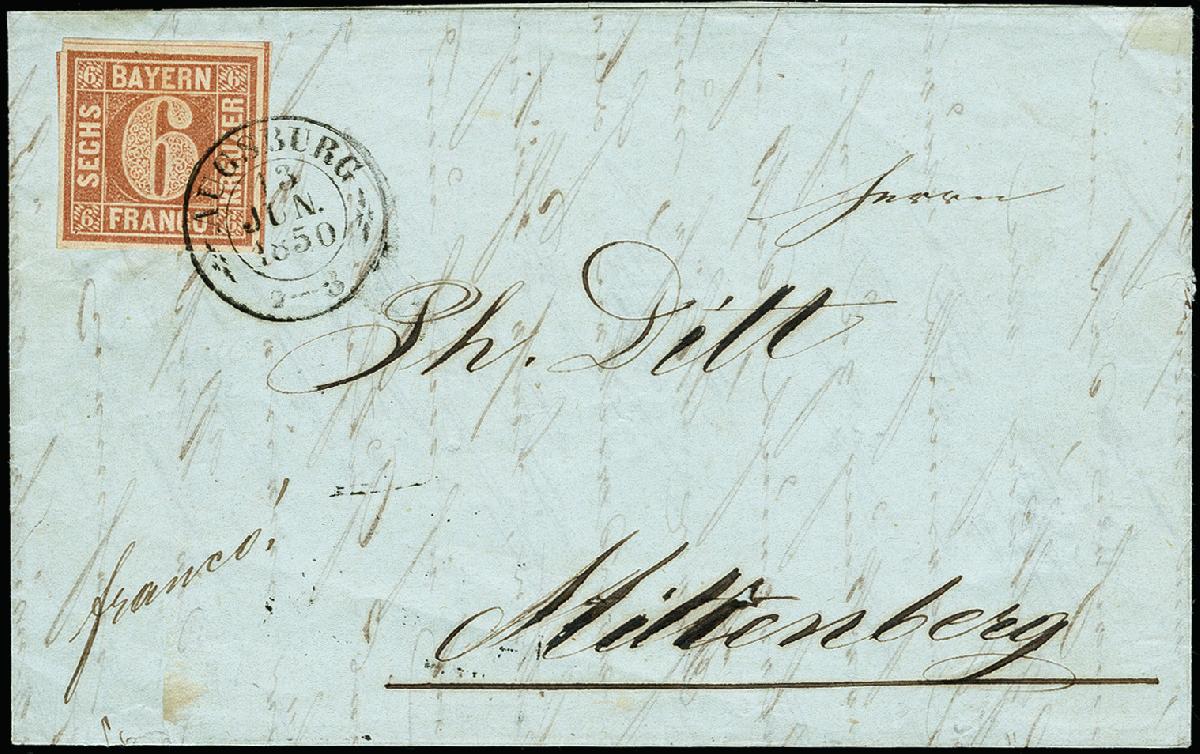 6 BAYERN 6
SECHS 6 KREUZER
6 FRANCO
AUGSBURG
13
JUN.
1850
2-3
Herrn
Ph. Dilt
franco.
Miltenberg